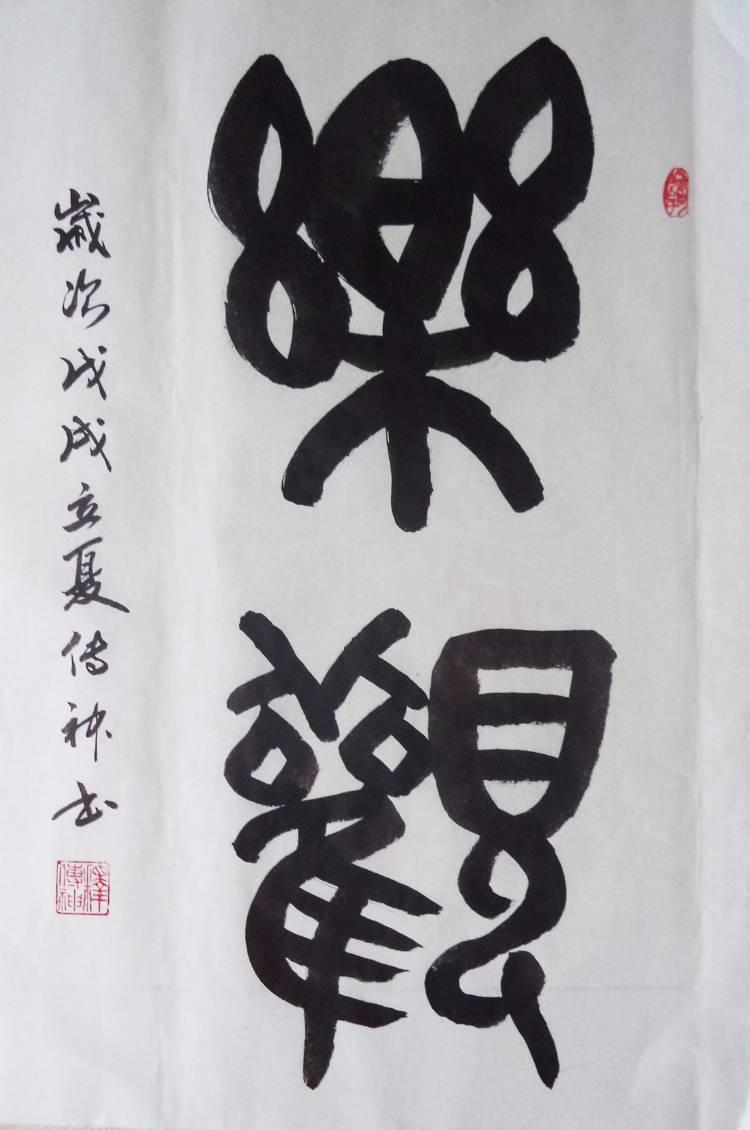 樂觀
歲次戊戌立夏传神书